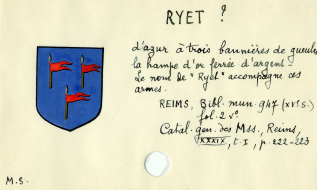 RYET ?
d'azur à trois bannières de gueules
la hampe d'or ferrée d'argent
Le nom de "Ryet" accompagne ces
armes.
REIMS, Bibl. mun. 947 (XVe s.)
fol. 2 v°
Catal. gén. des Mss., Reims,
XXXIX, t. I, p. 222-223
M.S.